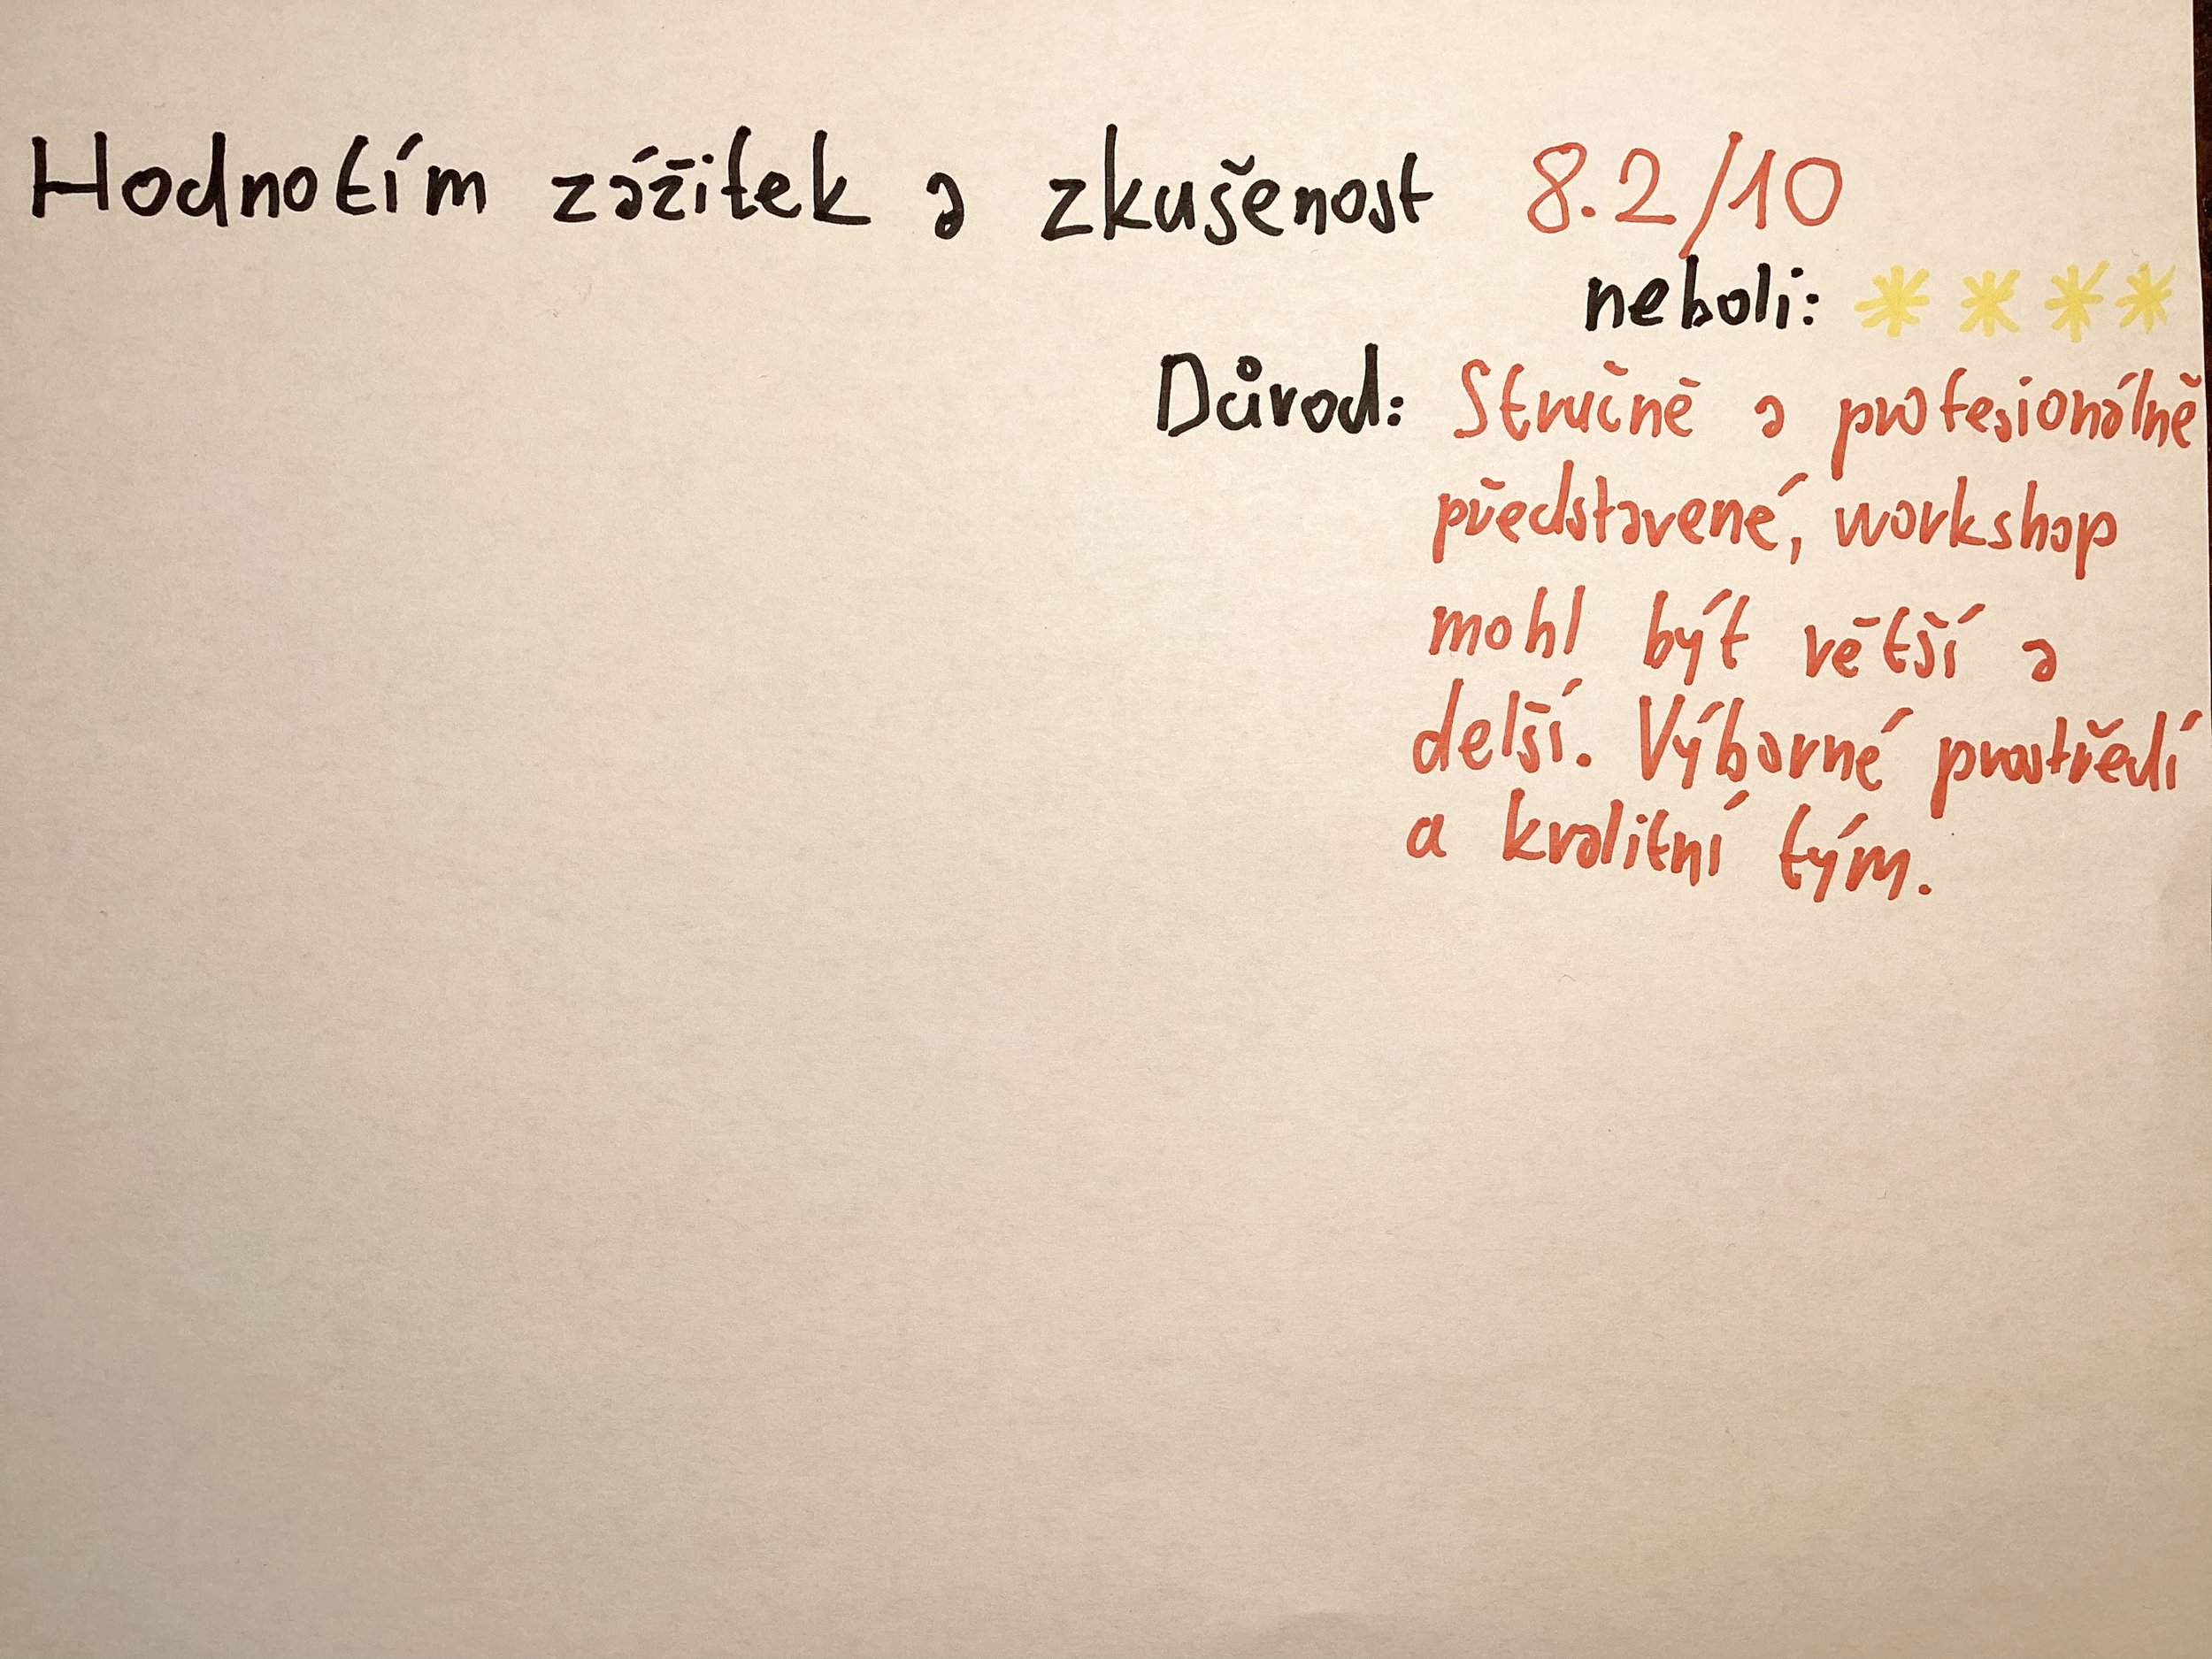 Hodnotím zážitek a zkušenost 8.2/10
neboli: ****
Důvod: Stručně a profesionálně
představené, workshop
mohl být větší a
delší. Výborné prostředí
a kvalitní tým.